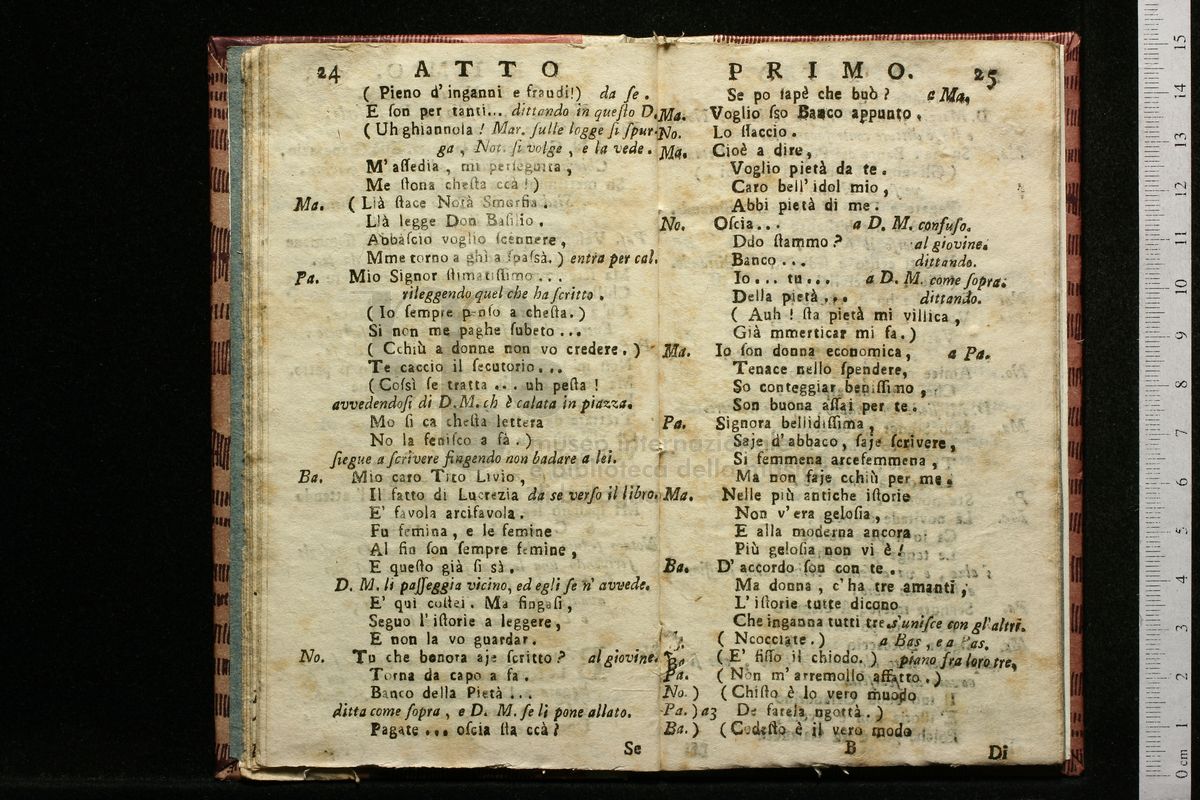 24 ATTO
( Pieno d'inganni e fraudi!) da se.
E ſon per tanti... dittando in queſto D.
( Uh ghiannola! Mar. ſulle logge ſi ſpur-
ga, Not. ſi volge, e la vede.
M'aſſedia, mi perſeguita,
Me ſtona cheſta ccà!)
Ma. ( Llà ſtace Notà Smorfia.
Llà legge Don Baſilio.
Abbaſcio voglio ſcennere,
Mme torno a ghì a ſpaſsà.) entra per cal.
Pa. Mio Signor ſtimatiſſimo...
rileggendo quel che ha ſcritto.
( Io ſempre penſo a cheſta.)
Si non me paghe ſubeto...
( Cchiù a donne non vo credere.)
Te caccio il ſecutorio...
( Coſsì ſe tratta... uh peſta!
avvedendoſi di D.M. ch è calata in piazza.
Mo ſi ca cheſta lettera
No la feniſco a fà.)
ſiegue a ſcrivere fingendo non badare a lei.
Ba. Mio caro Tito Livio,
Il fatto di Lucrezia da se verſo il libro.
E' favola arcifavola.
Fu femina, e le femine
Al fin ſon ſempre femine,
E queſto già ſi sà.
D. M. li paſſeggia vicino, ed egli ſe n'avvede.
E' qui coſtei. Ma fingaſi,
Seguo l'iſtorie a leggere,
E non la vo guardar.
No. Tu che bonora aje ſcritto? al giovine.
Torna da capo a fa.
Banco della Pietà...
ditta come ſopra, e D. M. ſe li pone allato.
Pagate... oſcia ſta ccà?
Se
PRIMO. 25
Se po ſapè che buò? a Ma.
Ma. Voglio ſso Banco appunto.
No. Lo ſtaccio.
Ma. Cioè a dire,
Voglio pietà da te.
Caro bell'idol mio,
Abbi pietà di me.
No. Oſcia... a D. M. confuſo.
Ddo ſtammo? al giovine.
Banco... dittando.
Io... tu... a D. M. come ſopra.
Della pietà... dittando.
( Auh! ſta pietà mi villica,
Già mmerticar mi fa.)
Ma. Io ſon donna economica, a Pa.
Tenace nello ſpendere,
So conteggiar beniſſimo,
Son buona aſſai per te.
Pa. Signora bellidiſſima,
Saje d'abbaco, ſaje ſcrivere,
Si femmena arcefemmena,
Ma non faje cchiù per me.
Ma. Nelle più antiche iſtorie
Non v'era geloſia,
E alla moderna ancora
Più geloſia non vi è!
Ba. D'accordo ſon con te.
Ma donna, c'ha tre amanti,
L'iſtorie tutte dicono
Che inganna tutti tre. s'uniſce con gl'altri.
( Ncocciate.) a Bas, e a Pas.
Ba. ( E' fiſſo il chiodo.) piano fra loro tre,
Pa. ( Non m'arremollo affatto.)
No. ) ( Chiſto è lo vero muodo
Pa. ) a3 De farela ngottà.)
Ba. ) ( Codeſto è il vero modo
B Di
museo internazionale
e biblioteca della musica
15
14
13
12
11
10
9
8
7
6
5
4
3
2
1
0 cm